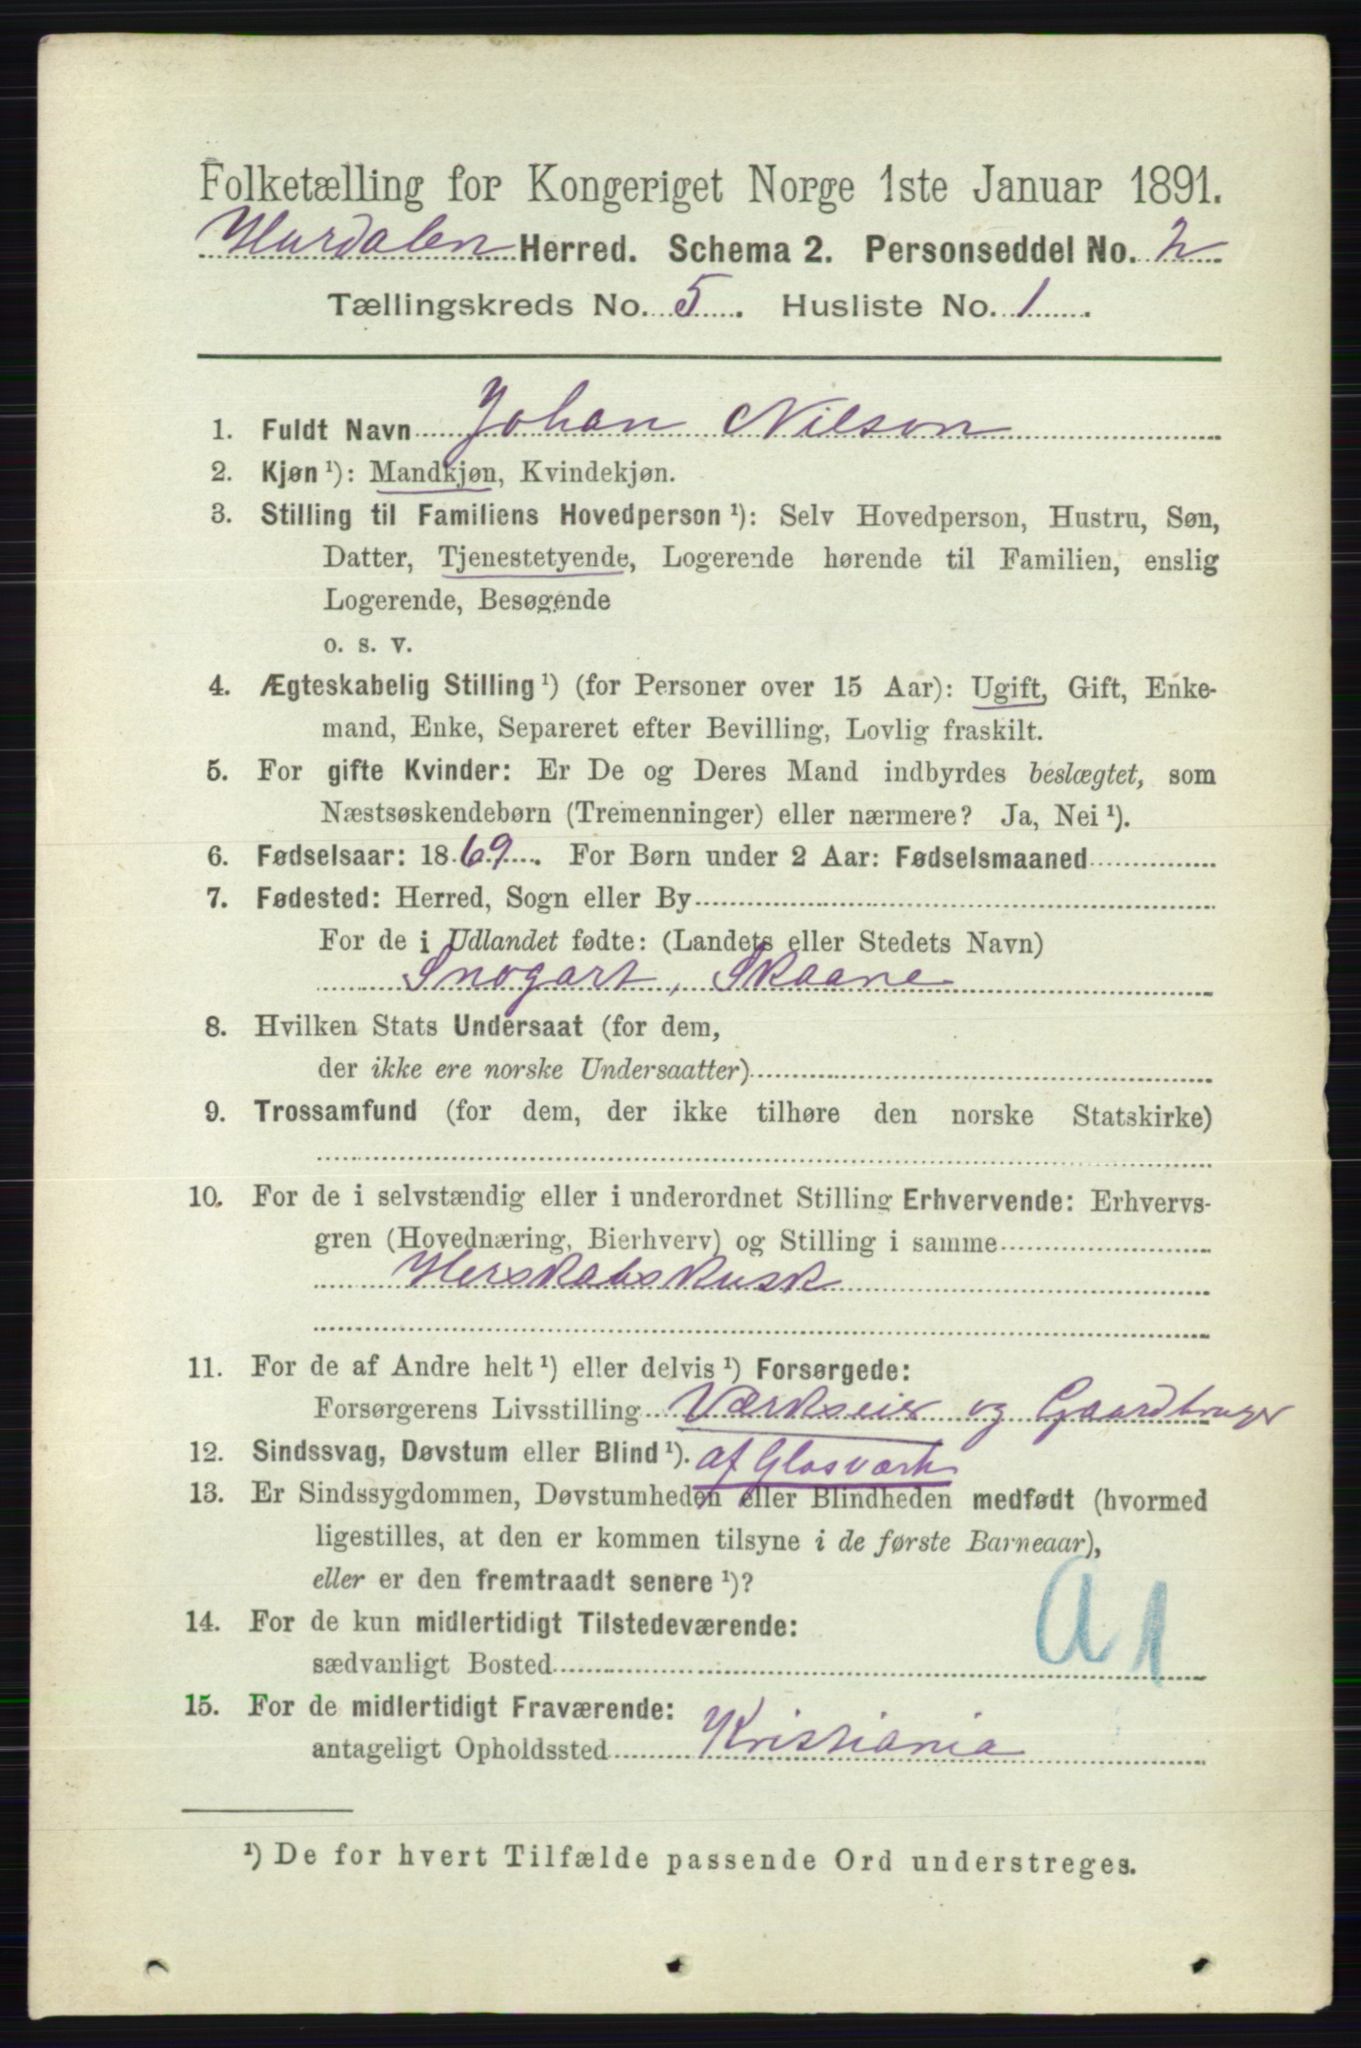 Folketælling for Kongeriget Norge 1ste Januar 1891.
Hurdalen Herred. Schema 2. Personseddel No. 2
Tællingskreds No. 5. Husliste No. 1.
1. Fuldt Navn Johan Nilson
2. Kjøn ¹): Mandkjøn, Kvindekjøn.
3. Stilling til Familiens Hovedperson ¹): Selv Hovedperson, Hustru, Søn,
Datter, Tjenestetyende, Logerende hørende til Familien, enslig
Logerende, Besøgende
o. s. v.
4. Ægteskabelig Stilling ¹) (for Personer over 15 Aar): Ugift, Gift, Enke-
mand, Enke, Separeret efter Bevilling, Lovlig fraskilt.
5. For gifte Kvinder: Er De og Deres Mand indbyrdes beslægtet, som
Næstsøskendebørn (Tremenninger) eller nærmere? Ja, Nei ¹).
6. Fødselsaar: 1869. For Børn under 2 Aar: Fødselsmaaned
7. Fødested: Herred, Sogn eller By
For de i Udlandet fødte: (Landets eller Stedets Navn)
Snogart, Skaane
8. Hvilken Stats Undersaat (for dem,
der ikke ere norske Undersaatter)
9. Trossamfund (for dem, der ikke tilhøre den norske Statskirke)
10. For de i selvstændig eller i underordnet Stilling Erhvervende: Erhvervs-
gren (Hovednæring, Bierhverv) og Stilling i samme
Herskabskusk
11. For de af Andre helt ¹) eller delvis ¹) Forsørgede:
Forsørgerens Livsstilling Værkseier og Gaardbruger
12. Sindssvag, Døvstum eller Blind ¹). af Glasværk
13. Er Sindssygdommen, Døvstumheden eller Blindheden medfødt (hvormed
ligestilles, at den er kommen tilsyne i de første Barneaar),
eller er den fremtraadt senere ¹)?
A 1
14. For de kun midlertidigt Tilstedeværende:
sædvanligt Bosted
15. For de midlertidigt Fraværende:
antageligt Opholdssted Kristiania
¹) De for hvert Tilfælde passende Ord understreges.